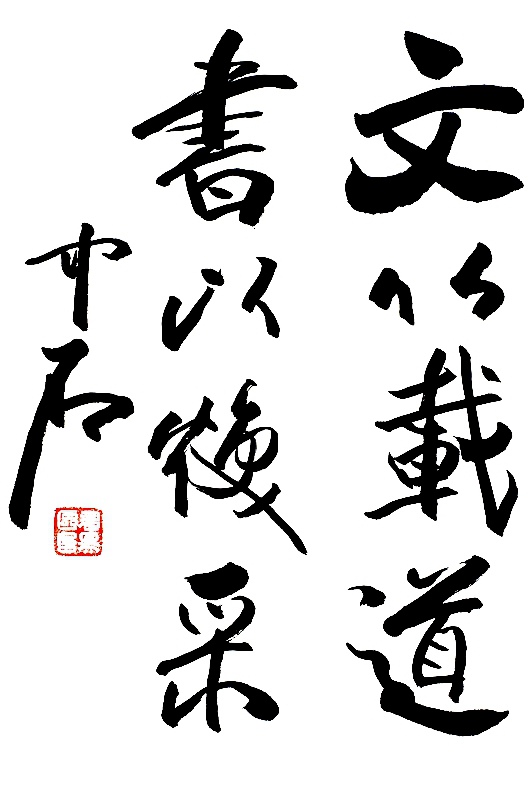 文以載道
書以煥采
中石